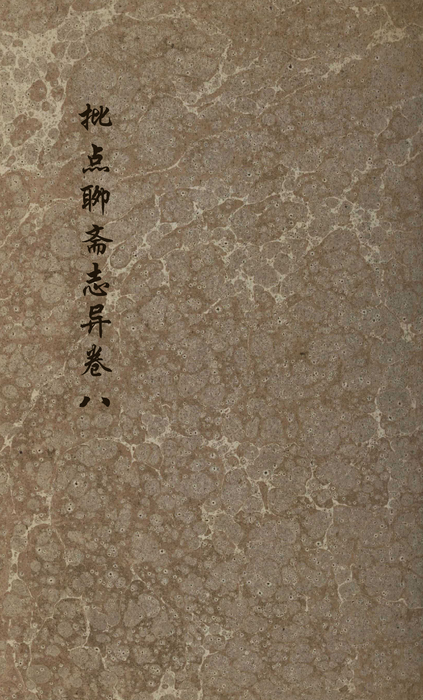 批点聊斋志异卷八